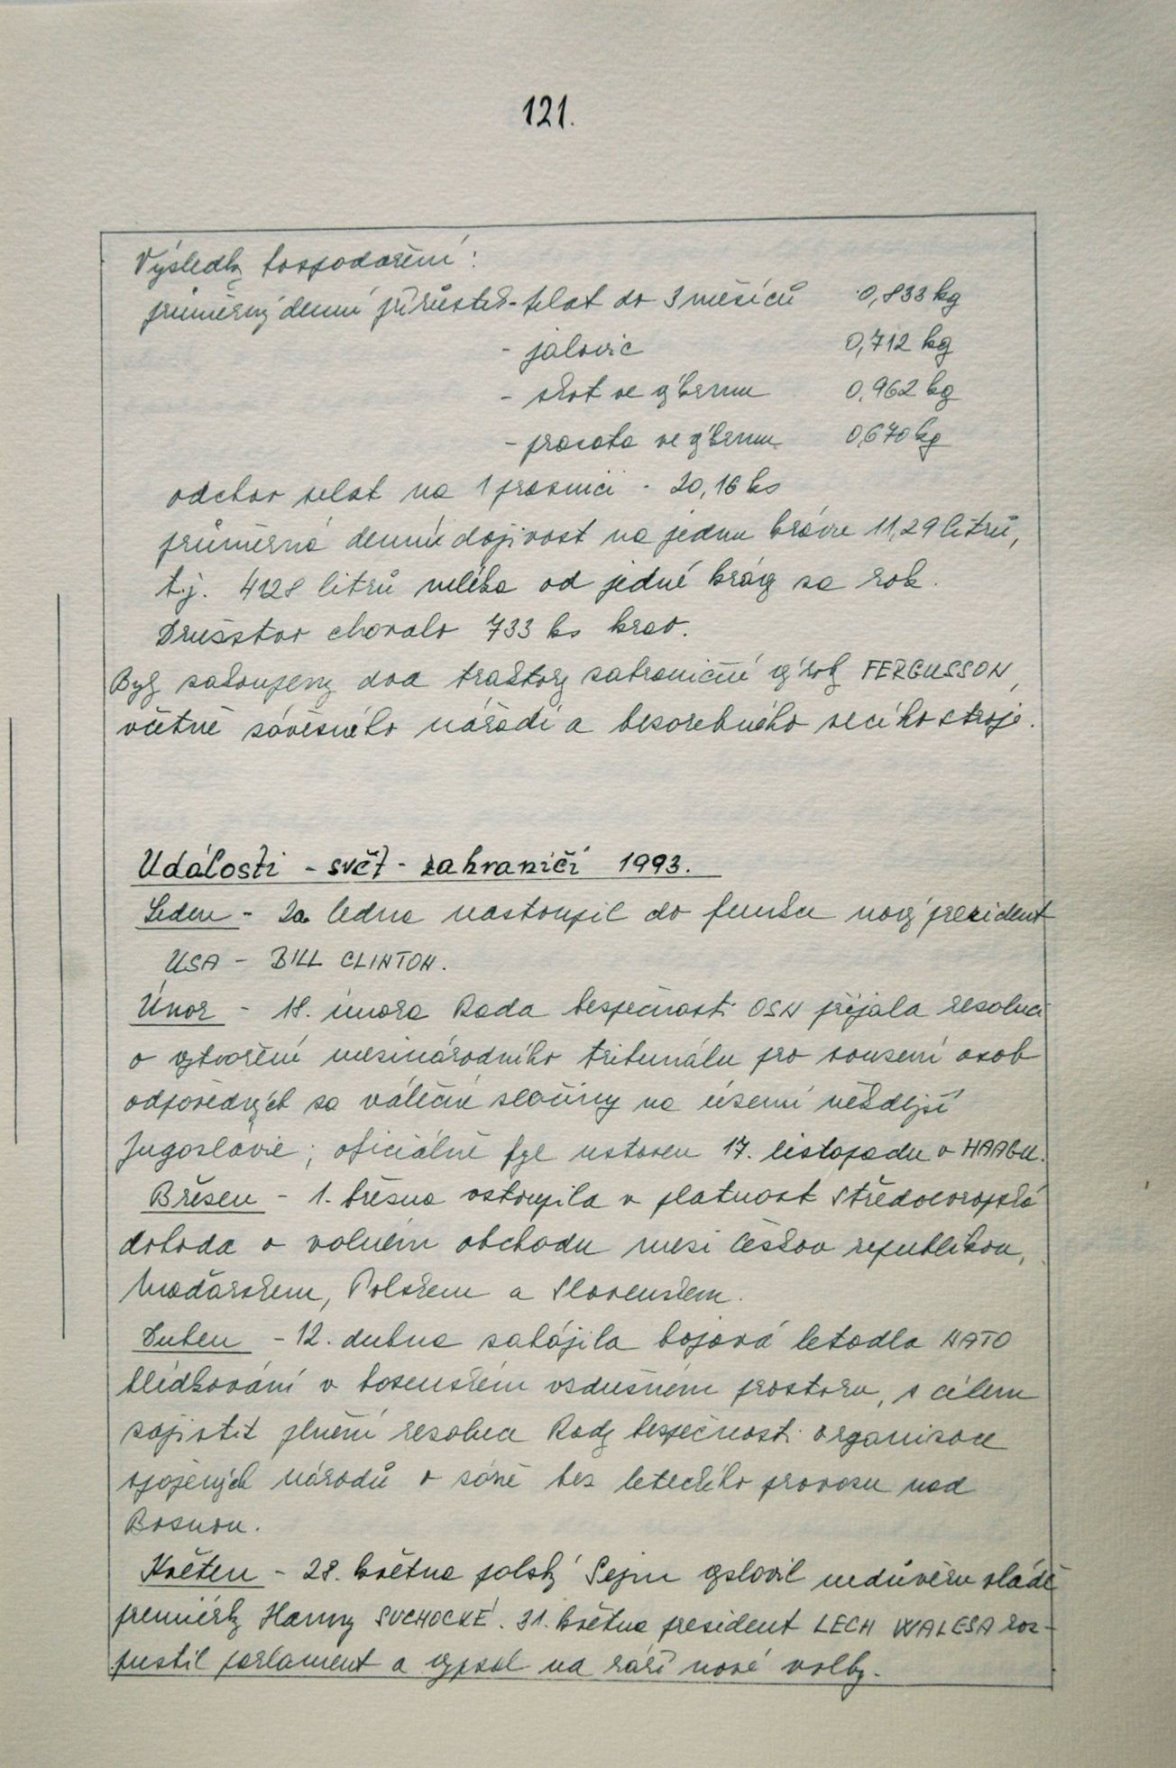 121.
Výsledky hospodaření:
průměrný denní přírůstek - telat do 3 měsíců 0,833 kg
- jalovic 0,712 kg
- skot ve výkrmu 0,962 kg
- prasata ve výkrmu 0,670 kg
odchov selat na 1 prasnici - 20,16 ks
průměrná denní dojivost na jednu krávu 11,29 litrů,
t.j. 4128 litrů mléka od jedné krávy za rok.
Družstvo chovalo 733 ks krav.
Byly zakoupeny dva traktory zahraniční výroby FERGUSSON,
včetně závěsného nářadí a bezorebného secího stroje.
Události - svět - zahraničí 1993.
Leden - 20. ledna nastoupil do funkce nový prezident
USA - BILL CLINTON.
Únor - 18. února Rada bezpečnosti OSN přijala resoluci
o vytvoření mezinárodního tribunálu pro souzení osob
odpovědných za válečné zločiny na území někdejší
Jugoslávie; oficiálně byl ustaven 17. listopadu v HAAGU.
Březen - 1. března vstoupila v platnost Středoevropská
dohoda o volném obchodu mezi Českou republikou,
Maďarskem, Polskem a Slovenskem.
Duben - 12. dubna zahájila bojová letadla NATO
hlídkování v bosenském vzdušném prostoru, s cílem
zajistit plnění resoluce Rady bezpečnosti organizace
spojených národů o zóně bez leteckého provozu nad
Bosnou.
Květen - 28. května polský Sejm vyslovil nedůvěru vládě
premiérky Hanny SUCHOCKÉ. 31. května president LECH WALESA roz-
pustil parlament a vypsal na září nové volby.